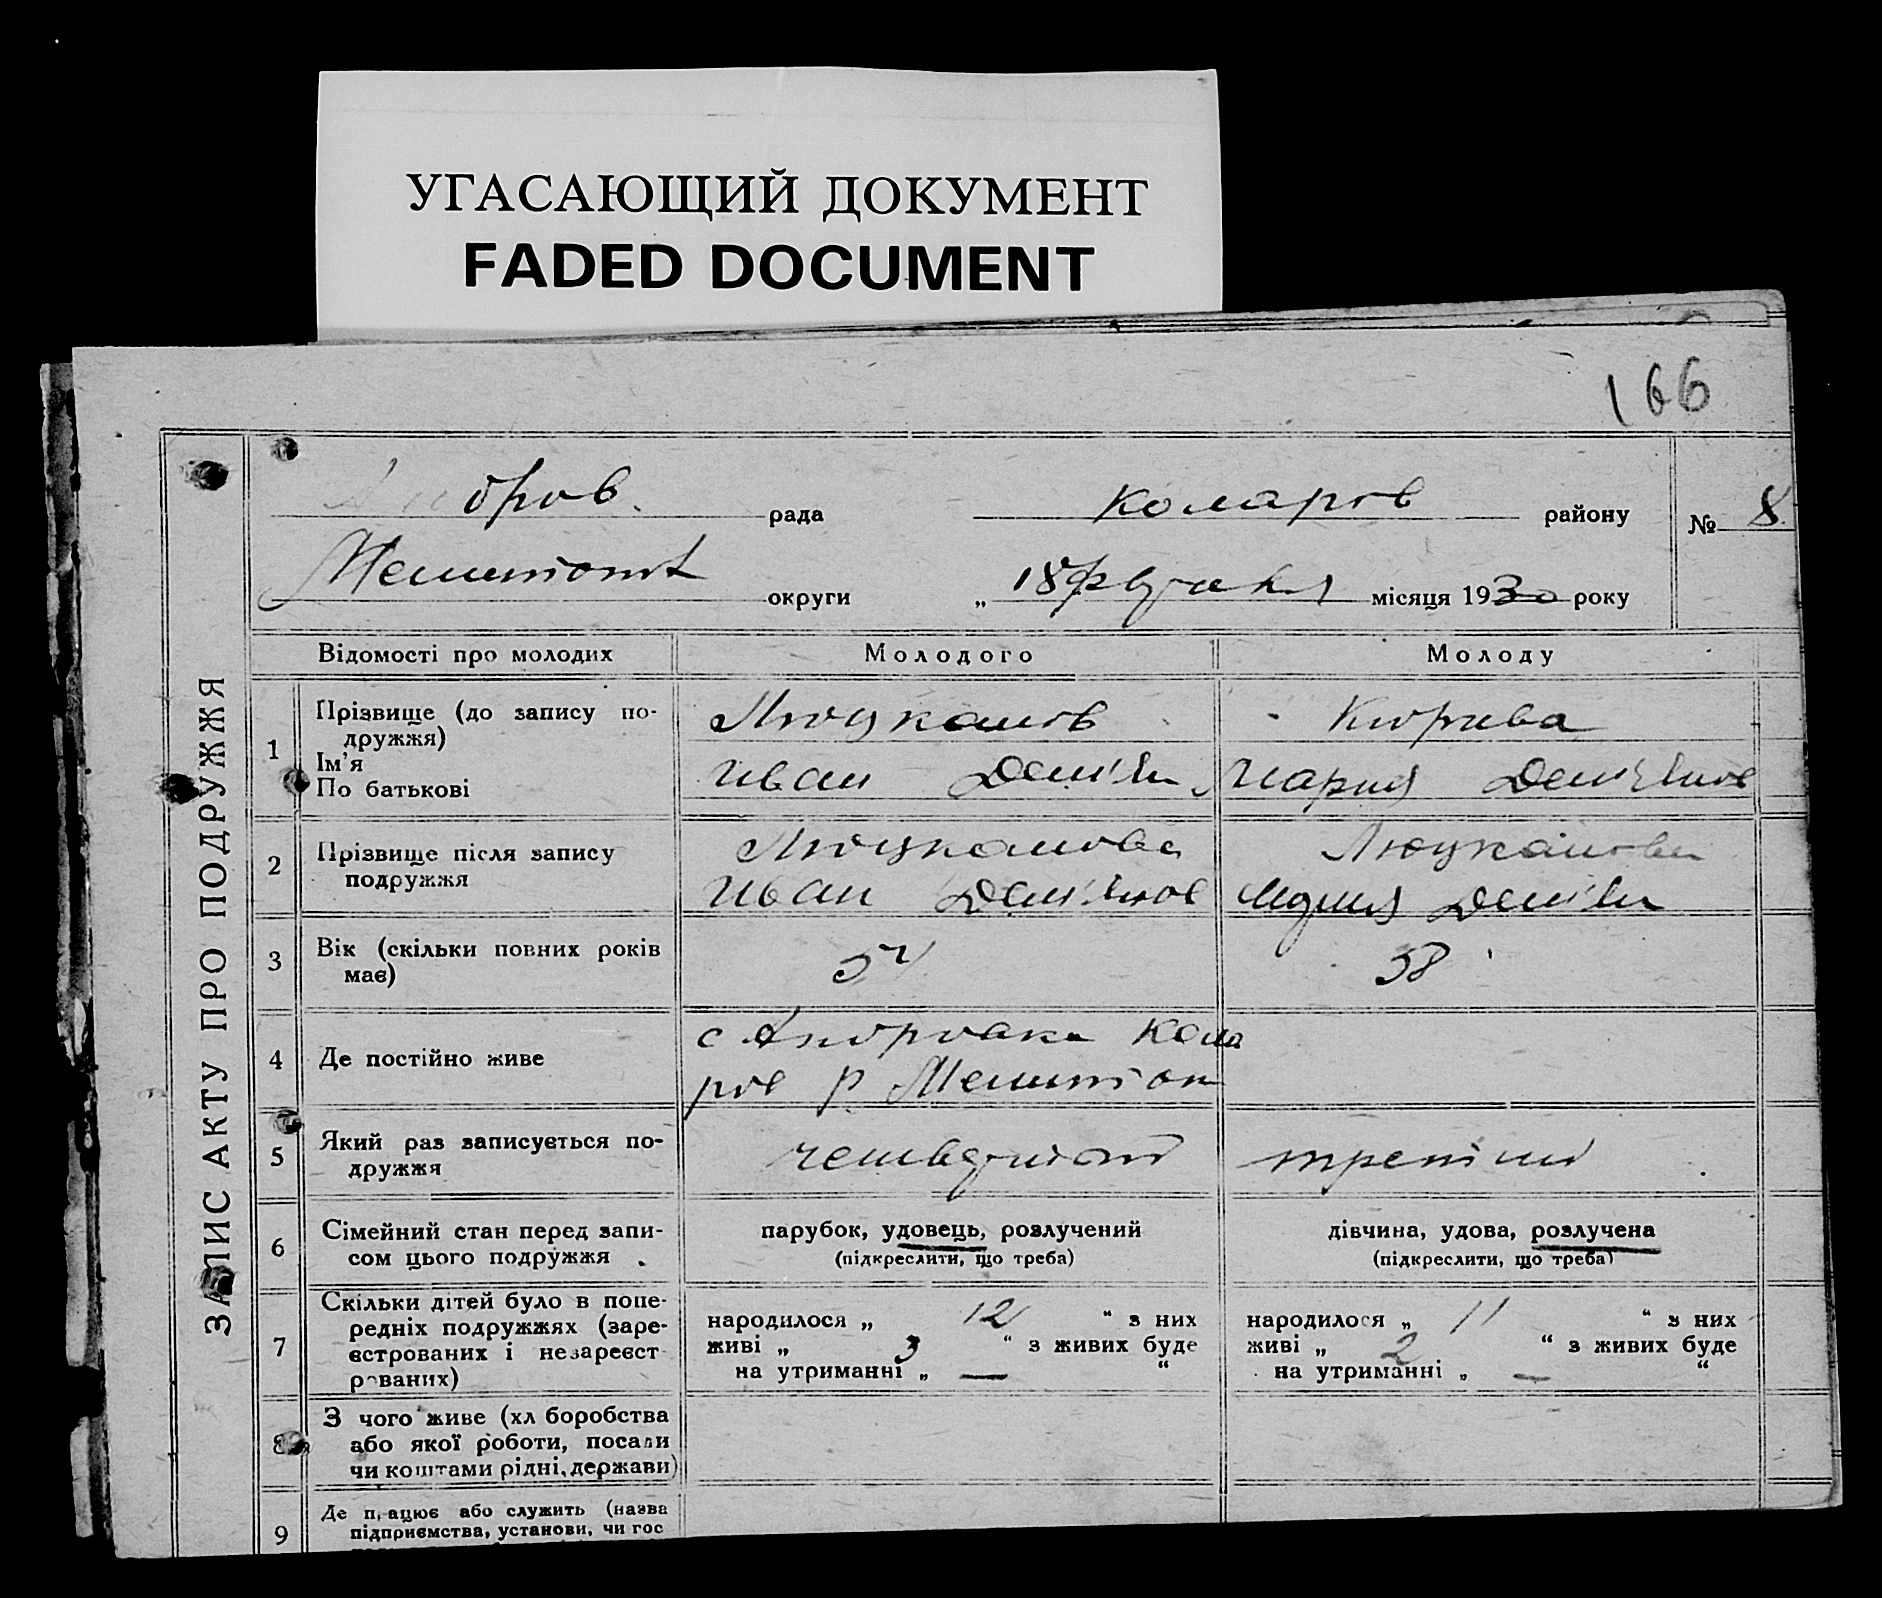 УГАСАЮЩИЙ ДОКУМЕНТ
FADED DOCUMENT
166
ЗАПИС АКТУ ПРО ПОДРУЖЖЯ
рада Коларов району № 8
округи „ 18 місяця 1930 року
Відомості про молодих Молодого Молоду
1 Прізвище (до запису по-
дружжя)
Ім'я
По батькові
Люцканов
Иван Дем'ян
Мария
2 Прізвище після запису
подружжя
Люцканова
Иван Дем'янов
Люцканова
Мария Дем'ян
3 Вік (скільки повних років
має)
54
38
4 Де постійно живе
с Кола
ров р.
5 Який раз записується по-
дружжя
третий
6 Сімейний стан перед запи-
сом цього подружжя
парубок, удовець, розлучений
(підкреслити, що треба)
дівчина, удова, розлучена
(підкреслити, що треба)
7 Скільки дітей було в попе-
редніх подружжях (заре-
єстрованих і незареєст
рованих)
народилося „ 12 “ з них
живі „ 3 “ з живих буде
на утриманні „ — “
народилося „ 11 “ з них
живі „ 2 “ з живих буде
на утриманні „ — “
8 З чого живе (хл боробства
або якої роботи, посади
чи коштами рідні, держави)
9 Де працює або служить (назва
підприємства, установи, чи гос